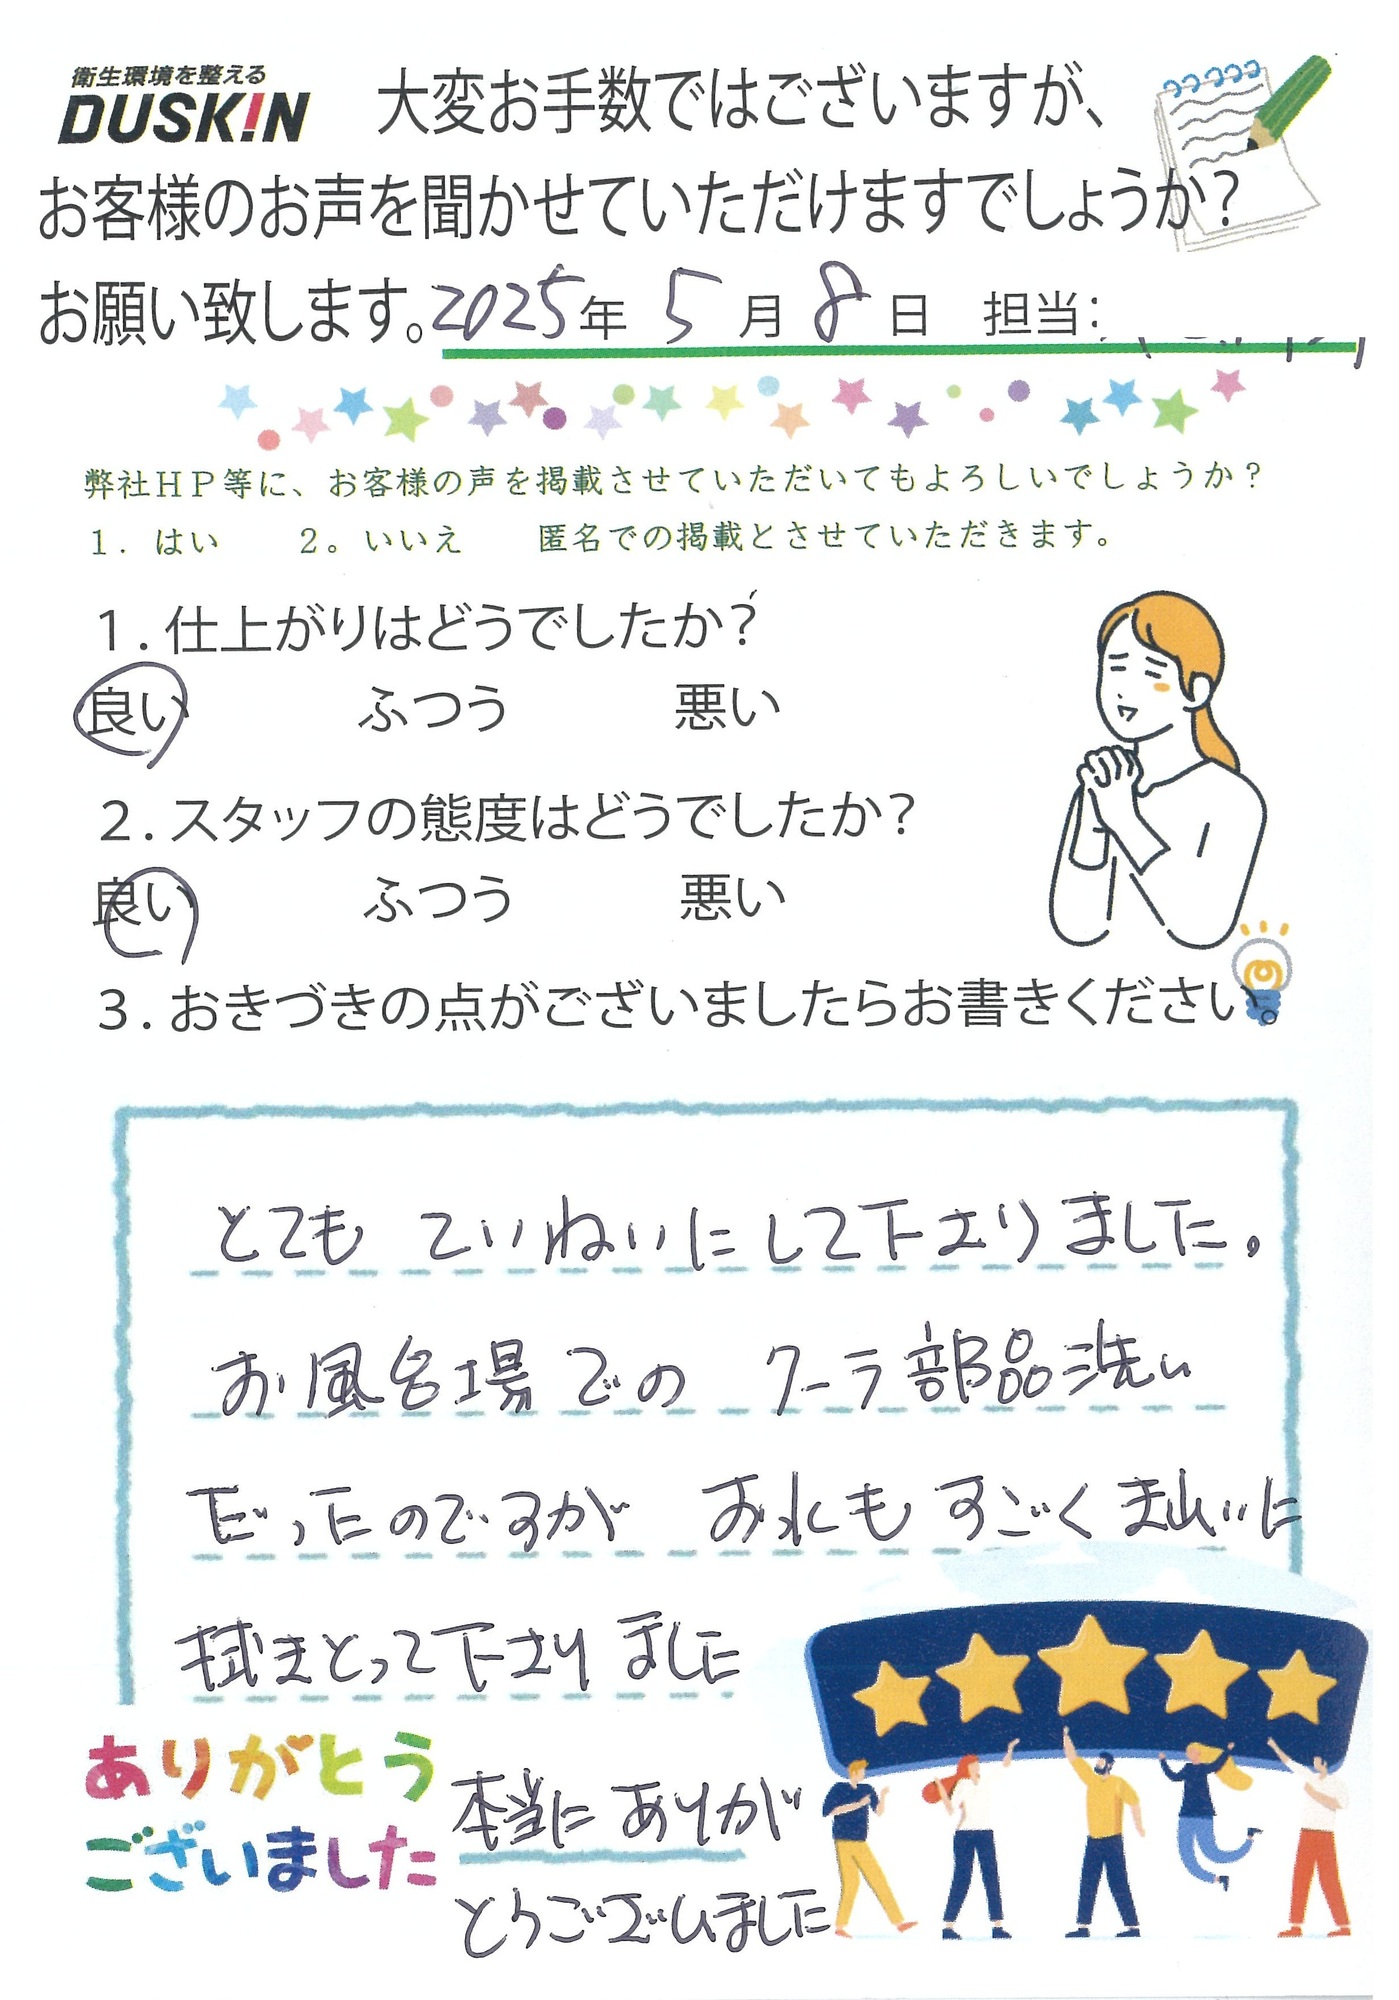 衛生環境を整える
DUSKIN
大変お手数ではございますが、
お客様のお声を聞かせていただけますでしょうか?
お願い致します。2025年 5月 8日 担当:
弊社HP等に、お客様の声を掲載させていただいてもよろしいでしょうか?
1. はい 2。いいえ 匿名での掲載とさせていただきます。
1.仕上がりはどうでしたか?
良い ふつう 悪い
2.スタッフの態度はどうでしたか?
良い ふつう 悪い
3.おきづきの点がございましたらお書きください。
とても ていねいにして下さりました。
お風呂場での クーラ部品洗い
だったのですが お水もすごくきれいに
拭きとって下さりました
ありがとう
ございました
本当に ありが
とうございました